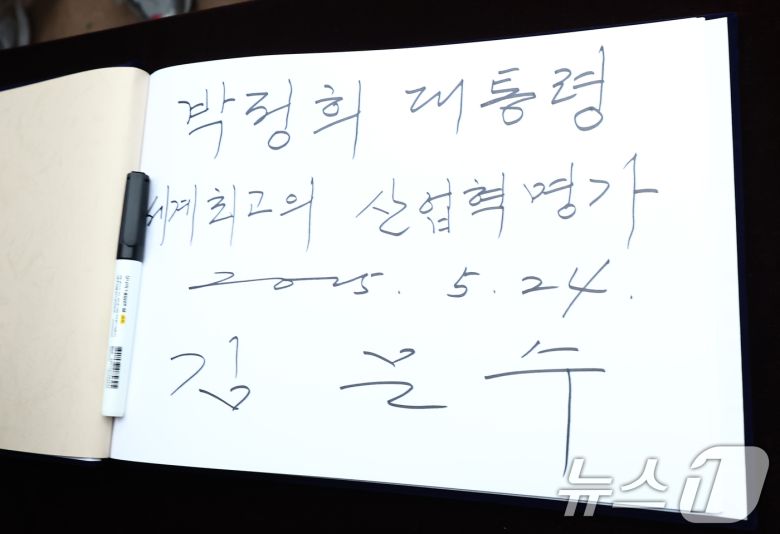 박정희 대통령
세계최고의 산업혁명가
2025. 5. 24.
김 문 수
뉴스1